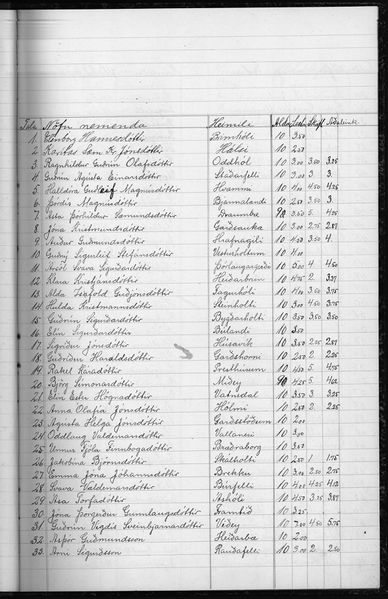 Tala Nöfn nemenda Heimili Aldur Lestur Skrift
1 Hannesdóttir Brunhóli 10 3.50
2 Kr. Jónsdóttir Hálsi 10 2.50
3 Ragnhildur Guðrún Olafsdóttir Oddhól 10 3.00 3.50 3.25
4 Guðrún Agústa Einarsdóttir Staðarfelli 10 3.00 3 3.
5 Halldóra Magnúsdóttir Hvammi 10 4.00 4.50 4.25
6 Þórdís Magnúsdóttir Bjarmalandi 10 3.50 3.
7 Asta Þorhildur Sæmundsdóttir Draumbæ 3.50 5 4.25
8 Jóna Kristmundsdóttir Garðsauka 10 3.00 2.75 2.87
9 Auður Guðmundsdóttir Hrafnagili 10 4.50 3.50 4.
10 Guðný Sigurleif Stefánsdóttir Vesturholtum 10 4.00
11 Svava Sigurðardóttir 10 5.00 4 4.50
12 Klara Kristjánsdóttir Heiðarbrún 10 4.75 2
13 Alda Guðjónsdóttir Fagurhól 10 4.00 3.50 3.75
14 Hulda Kristmannsdóttir Steinholti 10 4.50 3.75
15 Guðrún Sigurðardóttir Bygðarholti 10 3.50 3.50 3.50
16 Elín Sigurðardóttir Búlandi 10 3.50
17 Sigríður Jónsdóttir Húsavík 10 3.50 2.25 2.87
18 Guðríður Haraldsdóttir Garðshorni 10 2.50 2 2.25
19 Rakel Káradóttir Presthúsum 10 4.50 5 4.75
20 Björg Símonardóttir Miðey 4.25 5 4.62
21 Elín Ester Högnadóttir Vatnsdal 10 3.50 3 3.25
22 Anna Olafía Jónsdóttir Hólmi 10 2.50 2 2.25
23 Agústa Helga Jónsdóttir Garðstöðum 10 2.00
24 Oddlaug Valdemarsdóttir Vallanesi 10 3.00
25 Unnur Fjóla Finnbogadóttir Bræðraborg 10 3.50
26 Jakobína Björnsdóttir Skálholti 10 2.50 1 1.75
27 Emma Jóna Jóhannesdóttir Brekku 10 3.00 2.50 2.75
28 Svava Valdemarsdóttir Búrfelli 10 4.00 4.25 4.12
29 Asa Torfadóttir Áshóli 10 4.50 3.25 3.87
30 Jóna Þorgerður Gunnlaugsdóttir Framtíð 10 3.25
31 Guðrún Vigdís Sveinbjarnardóttir Viðey 10 7.00 4.50 5.75
32 Guðmundsson Heiðarbæ 10 2.00
33 Arni Sigurðsson Rauðafelli 10 3.00 2 2.50